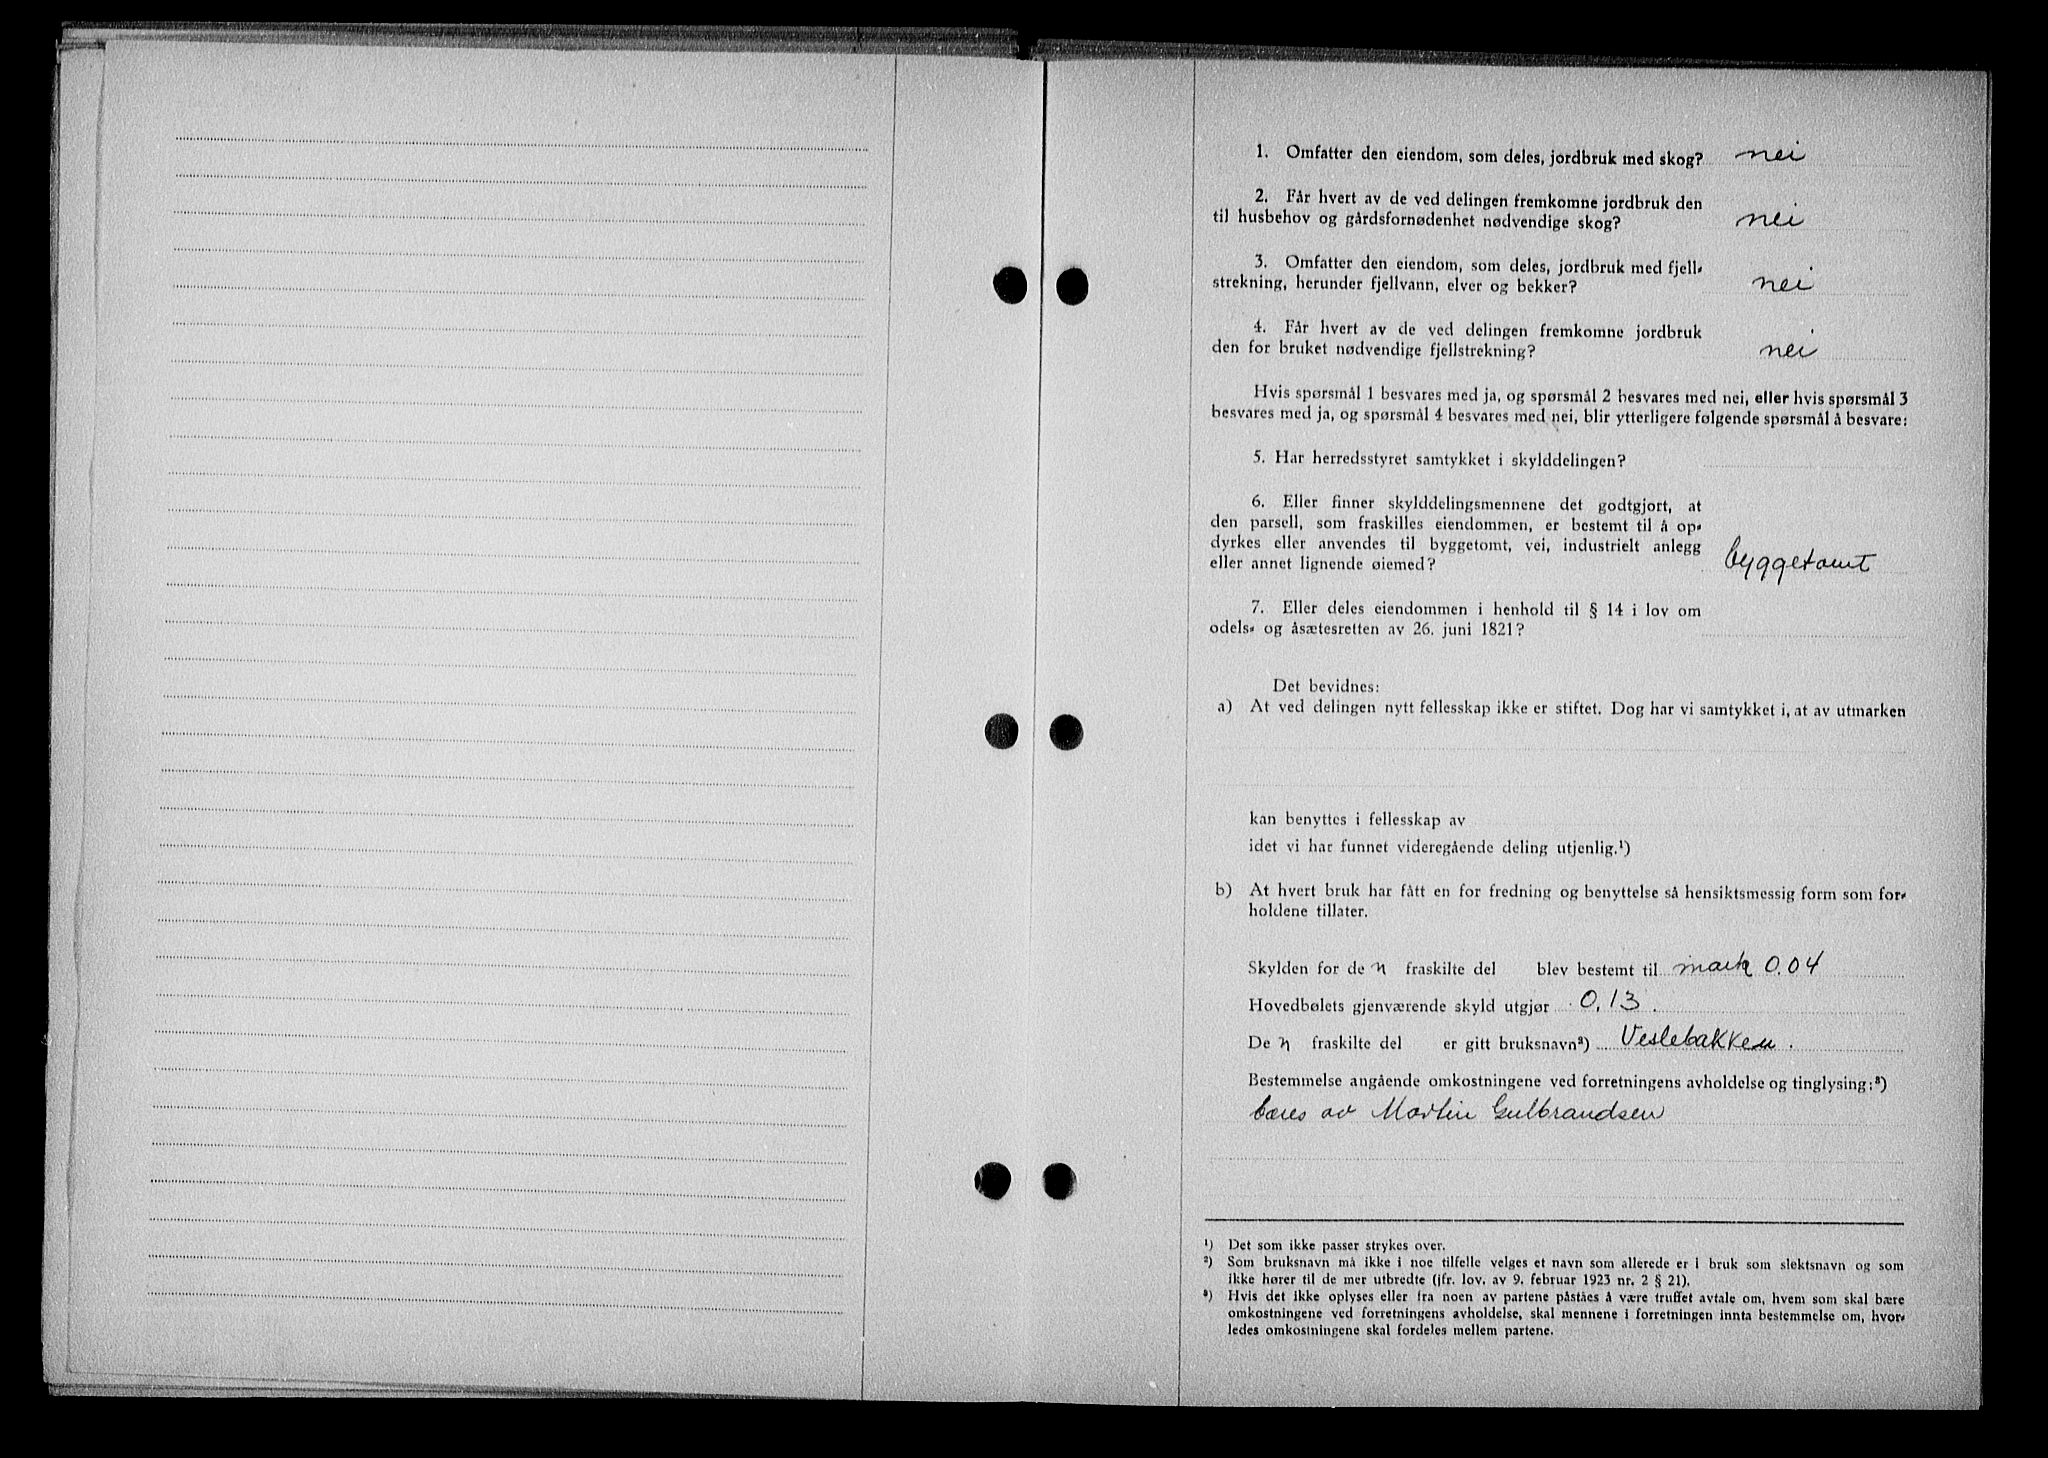 1. Omfatter den eiendom, som deles, jordbruk med skog? nei
2. Får hvert av de ved delingen fremkomne jordbruk den
til husbehov og gårdsfornødenhet nødvendige skog? nei
3. Omfatter den eiendom, som deles, jordbruk med fjell-
strekning, herunder fjellvann, elver og bekker? nei
4. Får hvert av de ved delingen fremkomne jordbruk
den for bruket nødvendige fjellstrekning? nei
Hvis spørsmål 1 besvares med ja, og spørsmål 2 besvares med nei, eller hvis spørsmål 3
besvares med ja, og spørsmål 4 besvares med nei, blir ytterligere følgende spørsmål å besvare:
5. Har herredsstyret samtykket i skylddelingen?
6. Eller finner skylddelingsmennene det godtgjort, at
den parsell, som fraskilles eiendommen, er bestemt til å op-
dyrkes eller anvendes til byggetomt, vei, industrielt anlegg
eller annet lignende øiemed? byggetomt
7. Eller deles eiendommen i henhold til § 14 i lov om
odels- og åsætesretten av 26. juni 1821?
Det bevidnes:
a) At ved delingen nytt fellesskap ikke er stiftet. Dog har vi samtykket i, at av utmarken
kan benyttes i fellesskap av
idet vi har funnet videregående deling utjenlig.¹)
b) At hvert bruk har fått en for fredning og benyttelse så hensiktsmessig form som for-
holdene tillater.
Skylden for de n fraskilte del blev bestemt til mark 0.04
Hovedbølets gjenværende skyld utgjør 0.13.
De n fraskilte del er gitt bruksnavn²) Veslebakken.
Bestemmelse angående omkostningene ved forretningens avholdelse og tinglysing:³)
bæres av Martin Gulbrandsen
¹) Det som ikke passer strykes over.
²) Som bruksnavn må ikke i noe tilfelle velges et navn som allerede er i bruk som slektsnavn og som
ikke hører til de mer utbredte (jfr. lov. av 9. februar 1923 nr. 2 § 21).
³) Hvis det ikke oplyses eller fra noen av partene påståes å være truffet avtale om, hvem som skal bære
omkostningene ved forretningens avholdelse, skal mennene i forretningen innta bestemmelse om, hvor-
ledes omkostningene skal fordeles mellem partene.